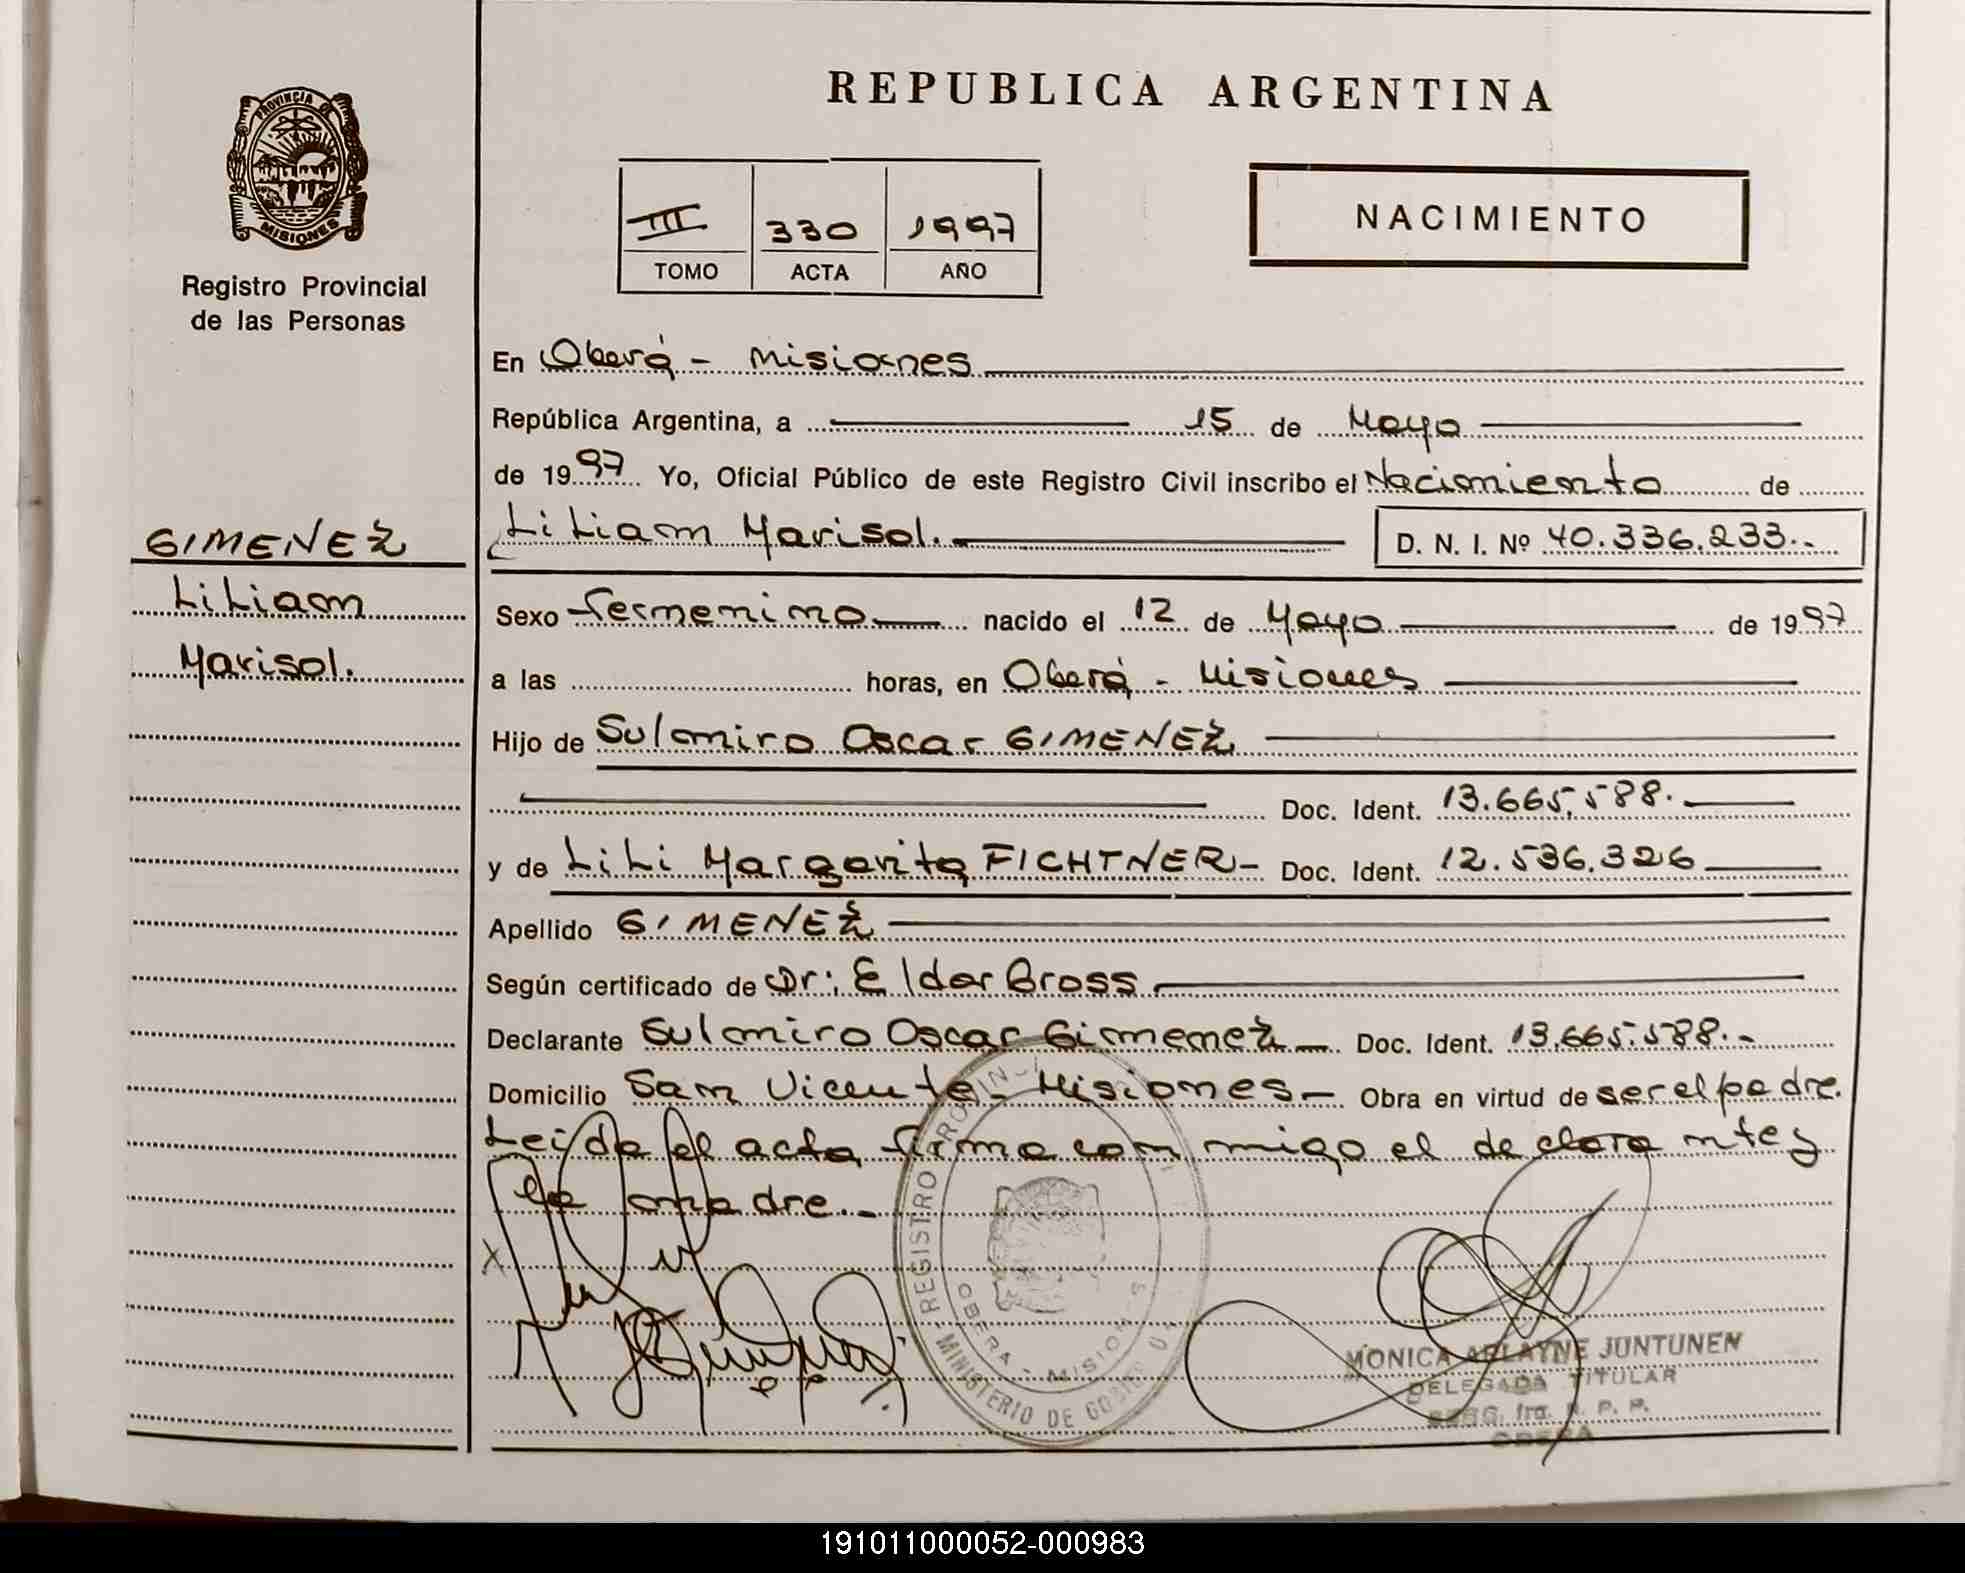 REPUBLICA ARGENTINA
PROVINCIA DE
MISIONES
Registro Provincial
de las Personas
III 330 1997
TOMO ACTA AÑO
NACIMIENTO
En Oberá - Misiones
República Argentina, a 15 de Mayo
de 1997 Yo, Oficial Público de este Registro Civil inscribo el Nacimiento de
Liliam Marisol. D. N. I. Nº 40.336.233.-
GIMENEZ
Liliam
Marisol.
Sexo Femenino nacido el 12 de Mayo de 1997
a las horas, en Oberá - Misiones
Hijo de Sulmiro Oscar GIMENEZ
Doc. Ident. 13.665.588.
y de Lili Margarita FICHTNER- Doc. Ident. 12.536.326
Apellido GIMENEZ
Según certificado de Dr: Eldor Bross
Declarante Sulmiro Oscar Gimenez Doc. Ident. 13.665.588.-
Domicilio San Vicente - Misiones - Obra en virtud de ser el padre.
Leida el acta firma conmigo el declarante y
la madre.-
REGISTRO PROVINCIAL
MINISTERIO DE GOBIERNO
OBERA - MISIONES
MONICA ARLAYNE JUNTUNEN
DELEGADA TITULAR
R. P. P.
OBERA
191011000052-000983